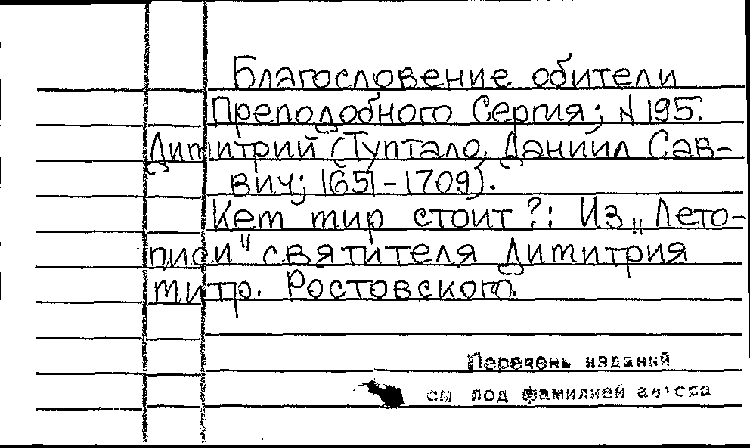 Благословение обители
Преподобного Сергия; N 195.
Димитрий (Туптало, Даниил Сав-
вич; 1651-1709).
Кем мир стоит?: Из „Лето-
писи" святителя Димитрия
митр. Ростовского.
Перечень изданий
см под фамилией автора